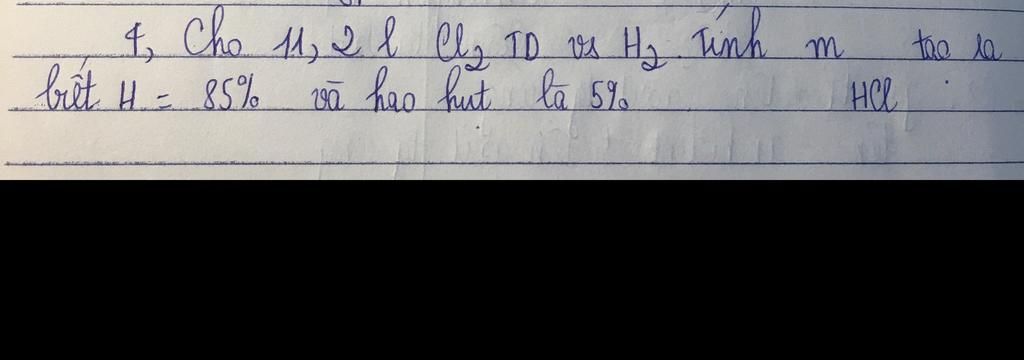 4, Cho 11,2 l Cl₂ TD vs H₂. Tính m tạo ra
biết H = 85% và hao hụt là 5% HCl